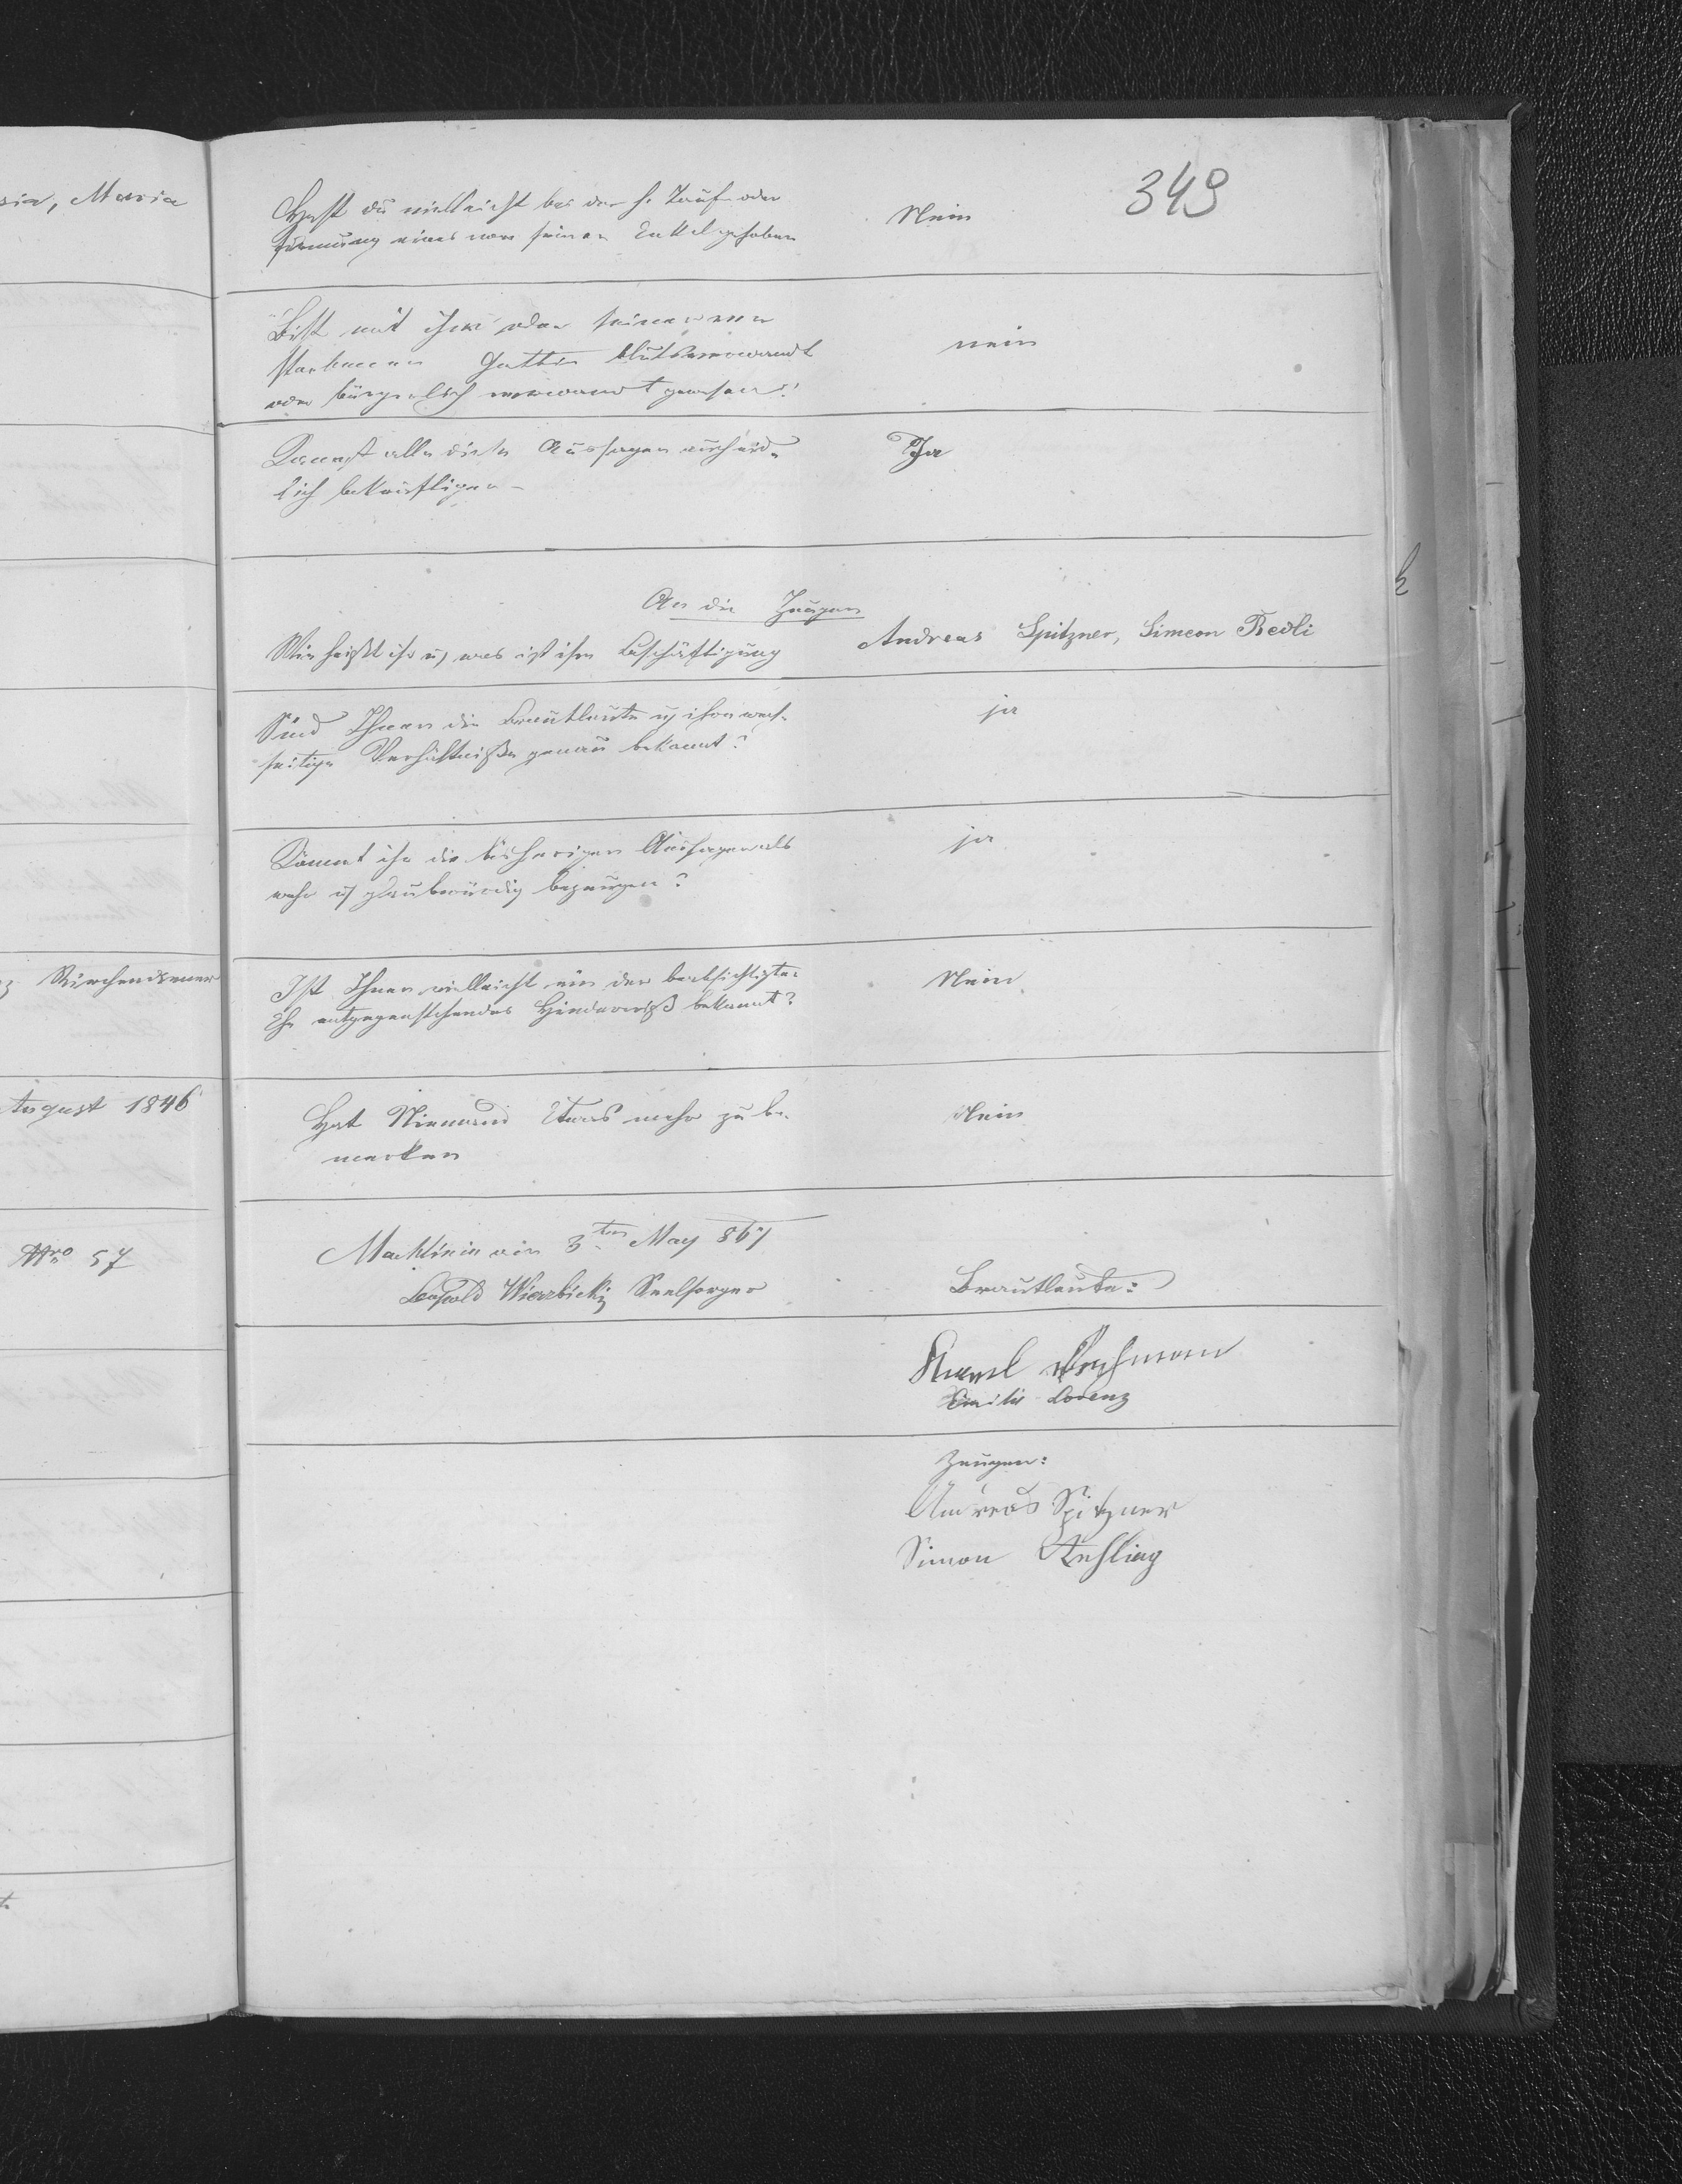 sia, Maria
Kirchendiener
August 1846
Nro 57
349
Hast du vielleicht bei der h. Taufe oder
Firmung eines von seinen gehoben
Nein
Bist mit ihm oder seiner
Gattin blutsverwandt
oder bürgerlich verwandt gewesen?
nein
Kannst alle diese Aussagen auch eid-
lich bekräftigen
Ja
An die Zeugen
Wie heißt ihr u. was ist ihre Beschäftigung
Andreas Spitzner, Simeon Redli
Sind Ihnen die Brautleute u. ihre wech-
seitige Verhältniße genau bekannt?
ja
Könnt ihr die bisherigen Aussagen als
wahr u. glaubwürdig bezeugen?
ja
Ist Ihnen vielleicht ein der beabsichtigten
Ehe entgegenstehendes Hinderniß bekannt?
Nein
Hat Niemand Etwas mehr zu be-
merken
Nein
3ten May 867
Leopold Wierzbicki Seelsorger
Brautleute:
Emilie Lorenz
Zeugen:
Andreas Spitzner
Simon